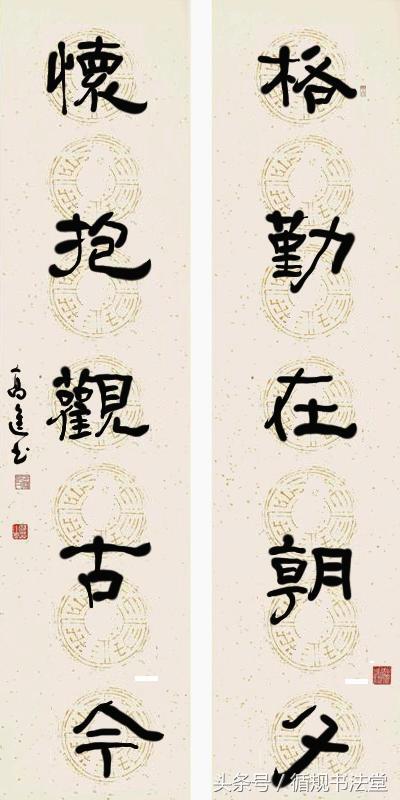 格勤在朝夕
懷抱觀古今
高進书
头条号 / 循规书法堂